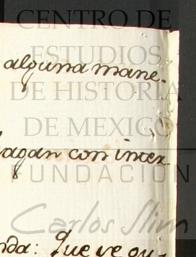 CENTRO DE
ESTUDIOS
alguna mane-
DE HISTORIA
DE MEXICO
hagan con inter
FUNDACIÓN
Carlos Slim
nda: Que ve